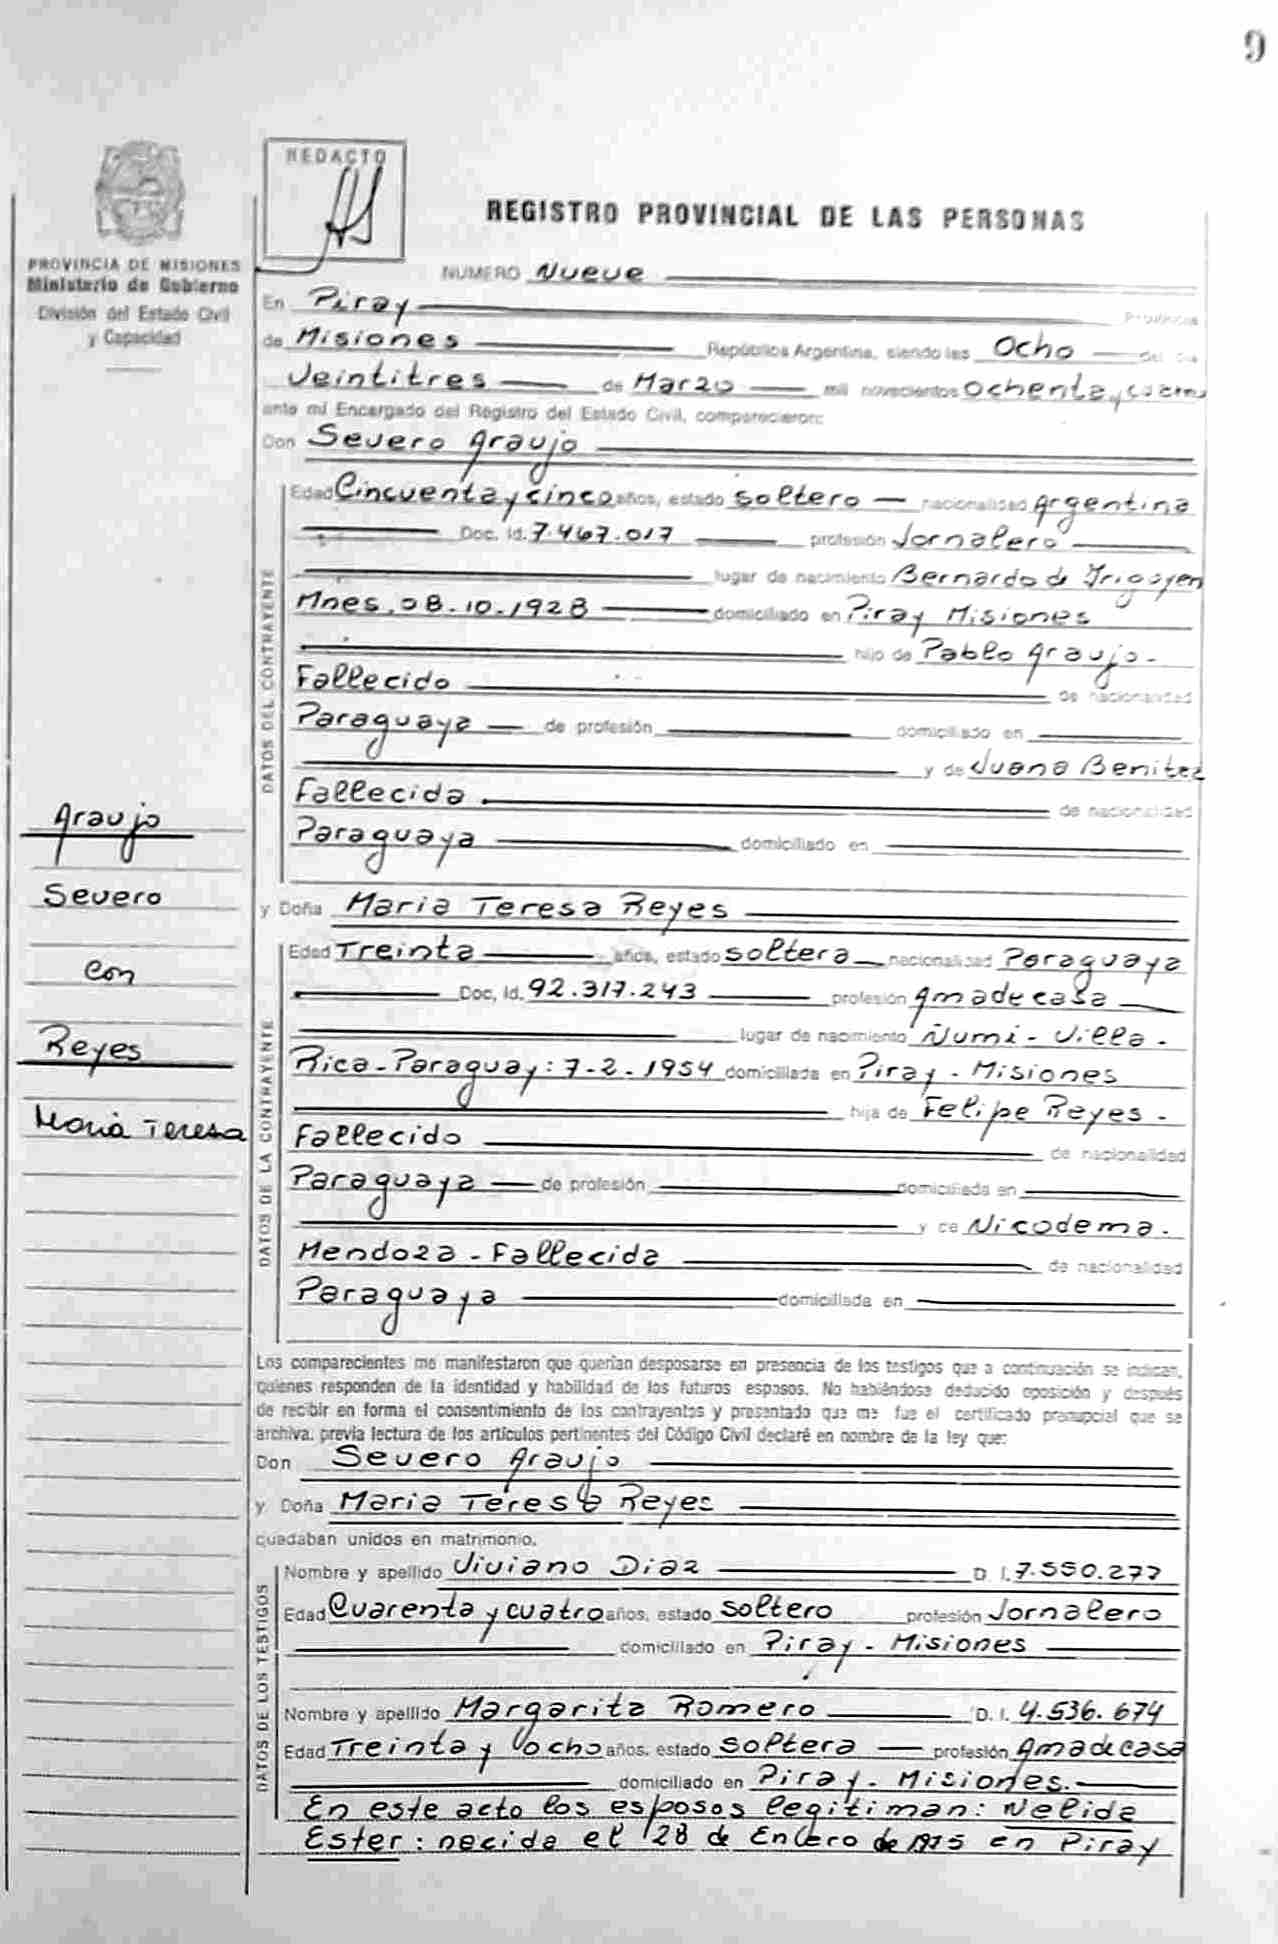 9
REDACTO
REGISTRO PROVINCIAL DE LAS PERSONAS
PROVINCIA DE MISIONES
Ministerio de Gobierno
División del Estado Civil
y Capacidad
NUMERO Nueve
En Piray Provincia
de Misiones República Argentina, siendo las Ocho del día
Veintitres de Marzo mil novecientos Ochenta y
ante mí Encargado del Registro del Estado Civil, comparecieron:
Don Severo Araujo
DATOS DEL CONTRAYENTE
Edad Cincuenta y cinco años, estado soltero nacionalidad Argentina
Doc. Id. 7.467.017 profesión Jornalero
lugar de nacimiento Bernardo de Irigoyen
Mnes, 08.10.1928 domiciliado en Piray Misiones
hijo de Pablo Araujo.
Fallecido de nacionalidad
Paraguaya de profesión domiciliado en
y de Juana Benitez
Fallecida de nacionalidad
Paraguaya domiciliado en
Araujo
Severo
con
Reyes
Maria Teresa
y Doña Maria Teresa Reyes
DATOS DE LA CONTRAYENTE
Edad Treinta años, estado soltera nacionalidad Paraguaya
Doc. Id. 92.317.243 profesión Ama de casa
lugar de nacimiento Ñumi - Villa.
Rica - Paraguay: 7-2-1954 domiciliada en Piray - Misiones
hija de Felipe Reyes -
Fallecido de nacionalidad
Paraguaya de profesión domiciliada en
y de Nicodema.
Mendoza - Fallecida de nacionalidad
Paraguaya domiciliada en
Los comparecientes me manifestaron que querían desposarse en presencia de los testigos que a continuación se indican,
quienes responden de la identidad y habilidad de los futuros esposos. No habiéndose deducido oposición y después
de recibir en forma el consentimiento de los contrayentes y presentado que me fue el certificado prenupcial que se
archiva, previa lectura de los artículos pertinentes del Código Civil declaré en nombre de la ley que:
Don Severo Araujo
y Doña Maria Teresa Reyes
quedaban unidos en matrimonio.
DATOS DE LOS TESTIGOS
Nombre y apellido Viviano Diaz D. I. 7.550.277
Edad Cuarenta y cuatro años, estado soltero profesión Jornalero
domiciliado en Piray - Misiones
Nombre y apellido Margarita Romero D. I. 4.536.674
Edad Treinta y ocho años, estado soltera profesión Ama de casa
domiciliado en Piray - Misiones.
En este acto los esposos legitiman: Nelida
Ester: nacida el 28 de Enero de 1975 en Piray